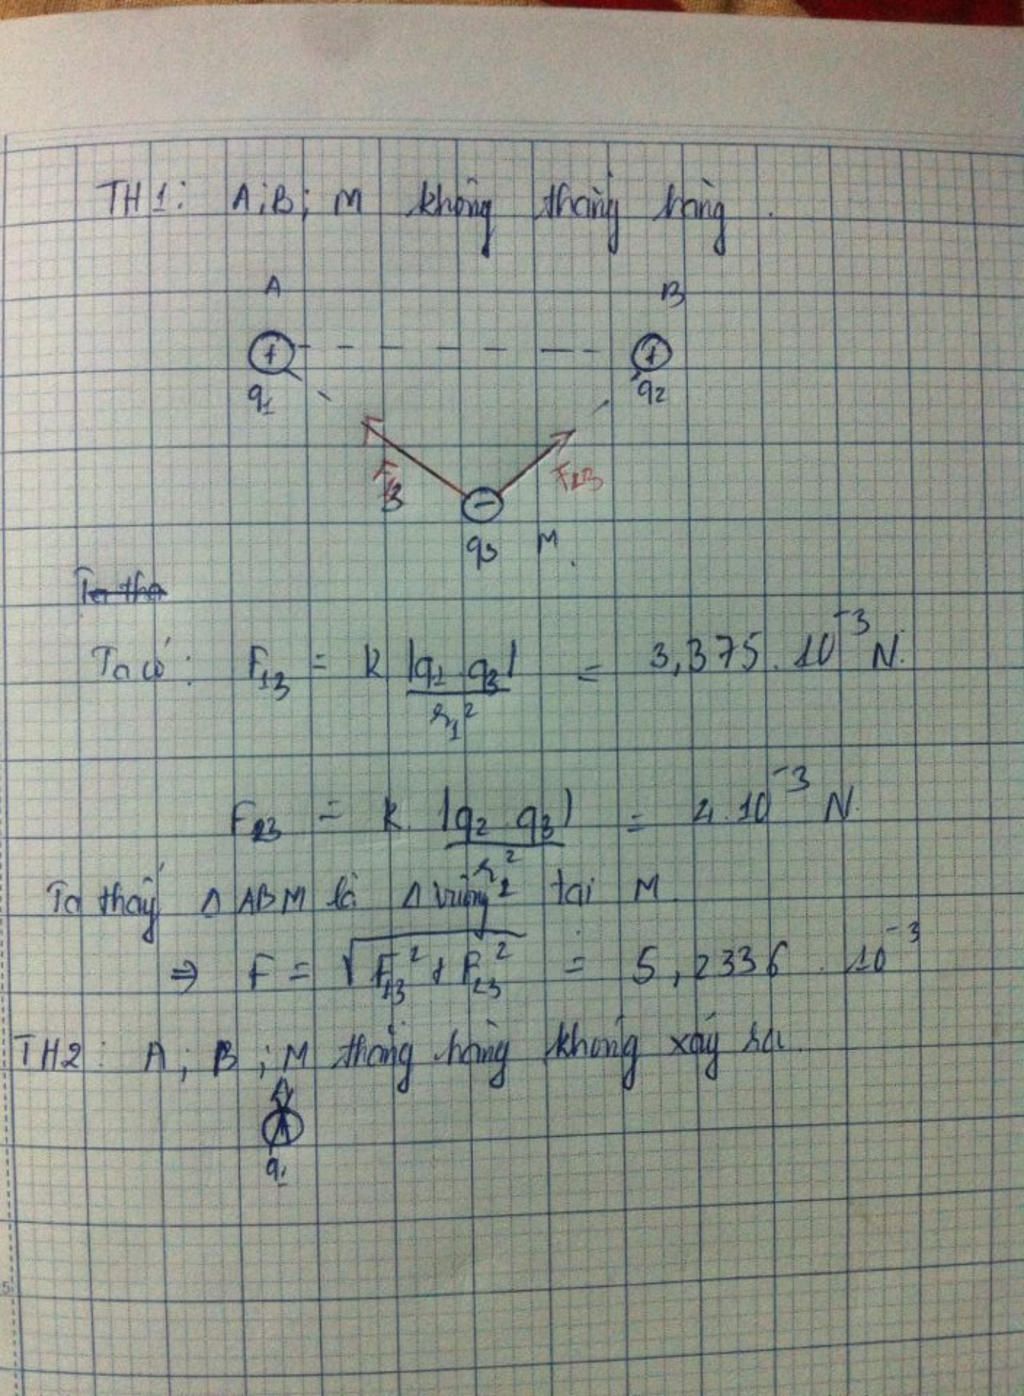 TH1: A;B; M không thẳng hàng.
A B
+ +
q1 q2
F13 F23
−
q3 M.
Ta có: F13 = k |q1 q3| / r1² = 3,375. 10⁻³ N.
F23 = k. |q2 q3| / r2² = 4.10⁻³ N
Ta thấy Δ ABM là Δ vuông tại M
⇒ F = √F13² + F23² = 5,2336 . 10⁻³
TH2: A; B; M thẳng hàng không xảy ra.
q1